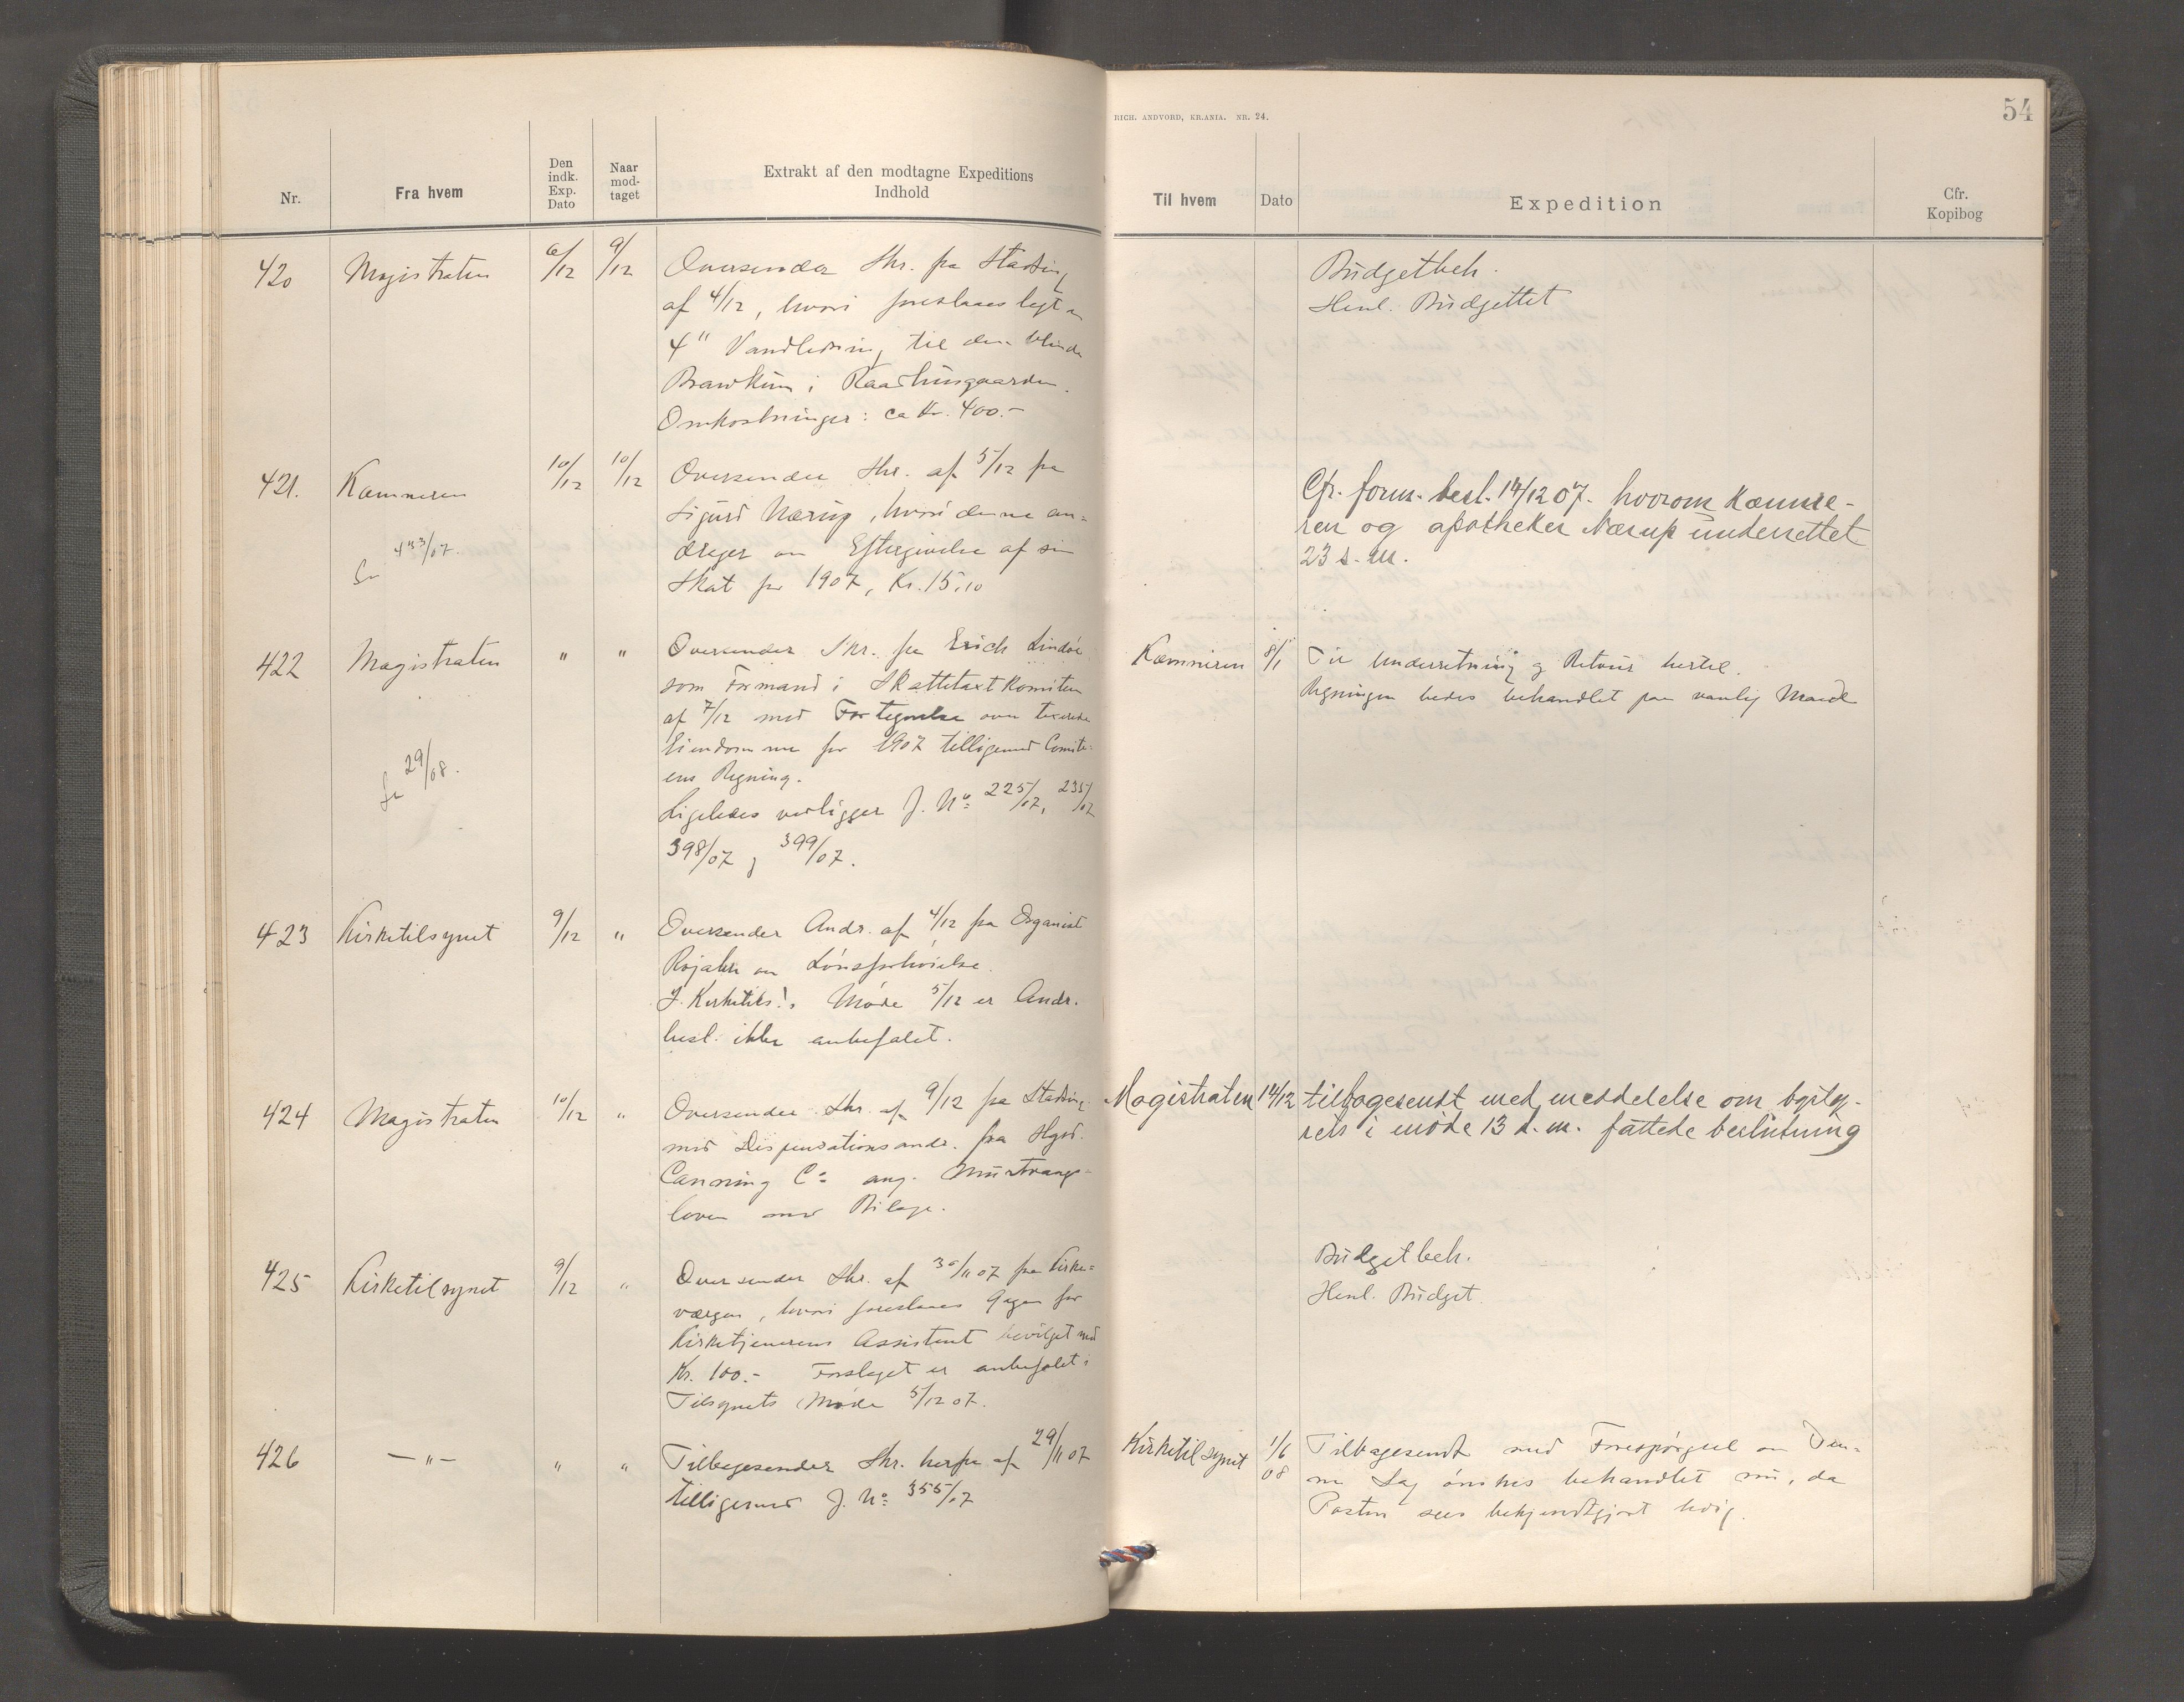 RICH. ANDVORD, KR.ANIA. NR. 24.
54
Nr.
Fra hvem
Den indk. Exp. Dato
Naar mod-taget
Extrakt af den modtagne Expeditions
Indhold
Til hvem
Dato
Expedition
Cfr.
Kopibog
420 Magistraten 6/12 9/12 Oversender Skr. fra Stadting
af 4/12, hvori foreslaaes lagt en
4" Vandledning til den blinde
Brandkum i Raadhusgaarden.
Omkostninger: ca Kr. 400.-
Budgetbeh.
Henl. Budgettet
421. Kæmneren 10/12 10/12 Oversender Skr. af 5/12 fra
Sigurd Nærup, hvori denne an-
drager om Eftergivelse af sin
Skat for 1907, Kr. 15,10
433/07.
Cfr. form. besl. 14/12 07. hvorom kæmne-
ren og apotheker Nærup underrettet
23 s. m.
422 Magistraten " " Oversender Skr. fra Erich Lindøe
som Formand i Skattetaxtkomiteen
af 7/12 med Fortegnelse over taxerede
Eiendomme for 1907 tilligemed Comite-
ens Regning.
Ligeledes vedligger J. No: 225/07, 235/07
398/07 og 399/07.
29/08.
Kæmneren 8/1 Til Underretning og Retour hertil.
Regningen bedes behandlet paa vanlig Maade
423 Kirketilsynet 9/12 " Oversender Andr. af 4/12 fra Organist
Rojahn om Lønsforhøielse.
I Kirketils!s Møde 5/12 er Andr.
besl. ikke anbefalet.
424 Magistraten 10/12 " Oversender Skr. af 9/12 fra Stadting.
med Dispensationsandr. fra Sigvd.
Canning Co: ang. Murtvangs-
loven med Bilage.
Magistraten 14/12 tilbagesendt med meddelelse om bysty-
rets i møde 13 d. m. fattede beslutning
425 Kirketilsynet 9/12 " Oversender Skr. af 30/11 07 fra Kirke-
værgen, hvori foreslaaes Gagen for
Kirketjenerens Assistent bevilget med
Kr. 100.- Forslaget er anbefalet i
Tilsynets Møde 5/12 07.
Budgetbeh.
Henl. Budget
426 — " — " " Tilbagesender Skr. herfra af 29/11 07
tilligemed J. No: 355/07
Kirketilsynet 1/6 08 Tilbagesendt med Forespørgsel om Den-
ne Sag ønskes behandlet nu, da
Posten sees bekjendtgjort ledig.